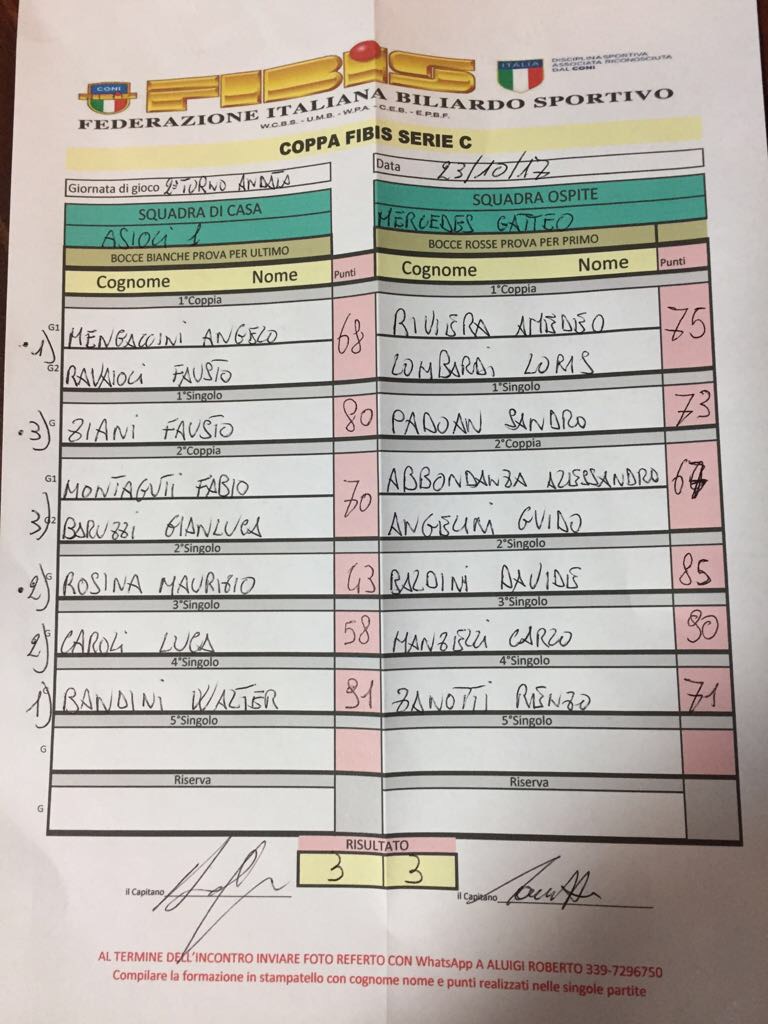 CONI
FIBIS
ITALIA
DISCIPLINA SPORTIVA
ASSOCIATA RICONOSCIUTA
DAL CONI
FEDERAZIONE ITALIANA BILIARDO SPORTIVO
W.C.B.S. - U.M.B. - W.P.A. - C.E.B. - E.P.B.F.
COPPA FIBIS SERIE C
Giornata di gioco 2° TURNO ANDATA Data 23/10/17
SQUADRA DI CASA SQUADRA OSPITE
ASIOLI 1 MERCEDES GATTEO
BOCCE BIANCHE PROVA PER ULTIMO BOCCE ROSSE PROVA PER PRIMO
Cognome Nome Punti Cognome Nome Punti
1°Coppia 1°Coppia
.1) G1 MENGACCINI ANGELO 68 RIVIERA AMEDEO 75
G2 RAVAIOLI FAUSTO LOMBARDI LORIS
1°Singolo 1°Singolo
.3) G ZIANI FAUSTO 80 PADOAN SANDRO 73
2°Coppia 2°Coppia
G1 MONTAGUTI FABIO 70 ABBONDANZA ALESSANDRO
3) G2 BARUZZI GIANLUCA ANGELINI GUIDO
2°Singolo 2°Singolo
.2) G ROSINA MAURIZIO 43 BALDINI DAVIDE 85
3°Singolo 3°Singolo
2) G CAROLI LUCA 58 MANZELLI CARLO 90
4°Singolo 4°Singolo
1) G BANDINI WALTER 91 ZANOTTI RENZO 71
5°Singolo 5°Singolo
G
Riserva Riserva
G
RISULTATO
3 3
il Capitano il Capitano
AL TERMINE DELL'INCONTRO INVIARE FOTO REFERTO CON WhatsApp A ALUIGI ROBERTO 339-7296750
Compilare la formazione in stampatello con cognome nome e punti realizzati nelle singole partite